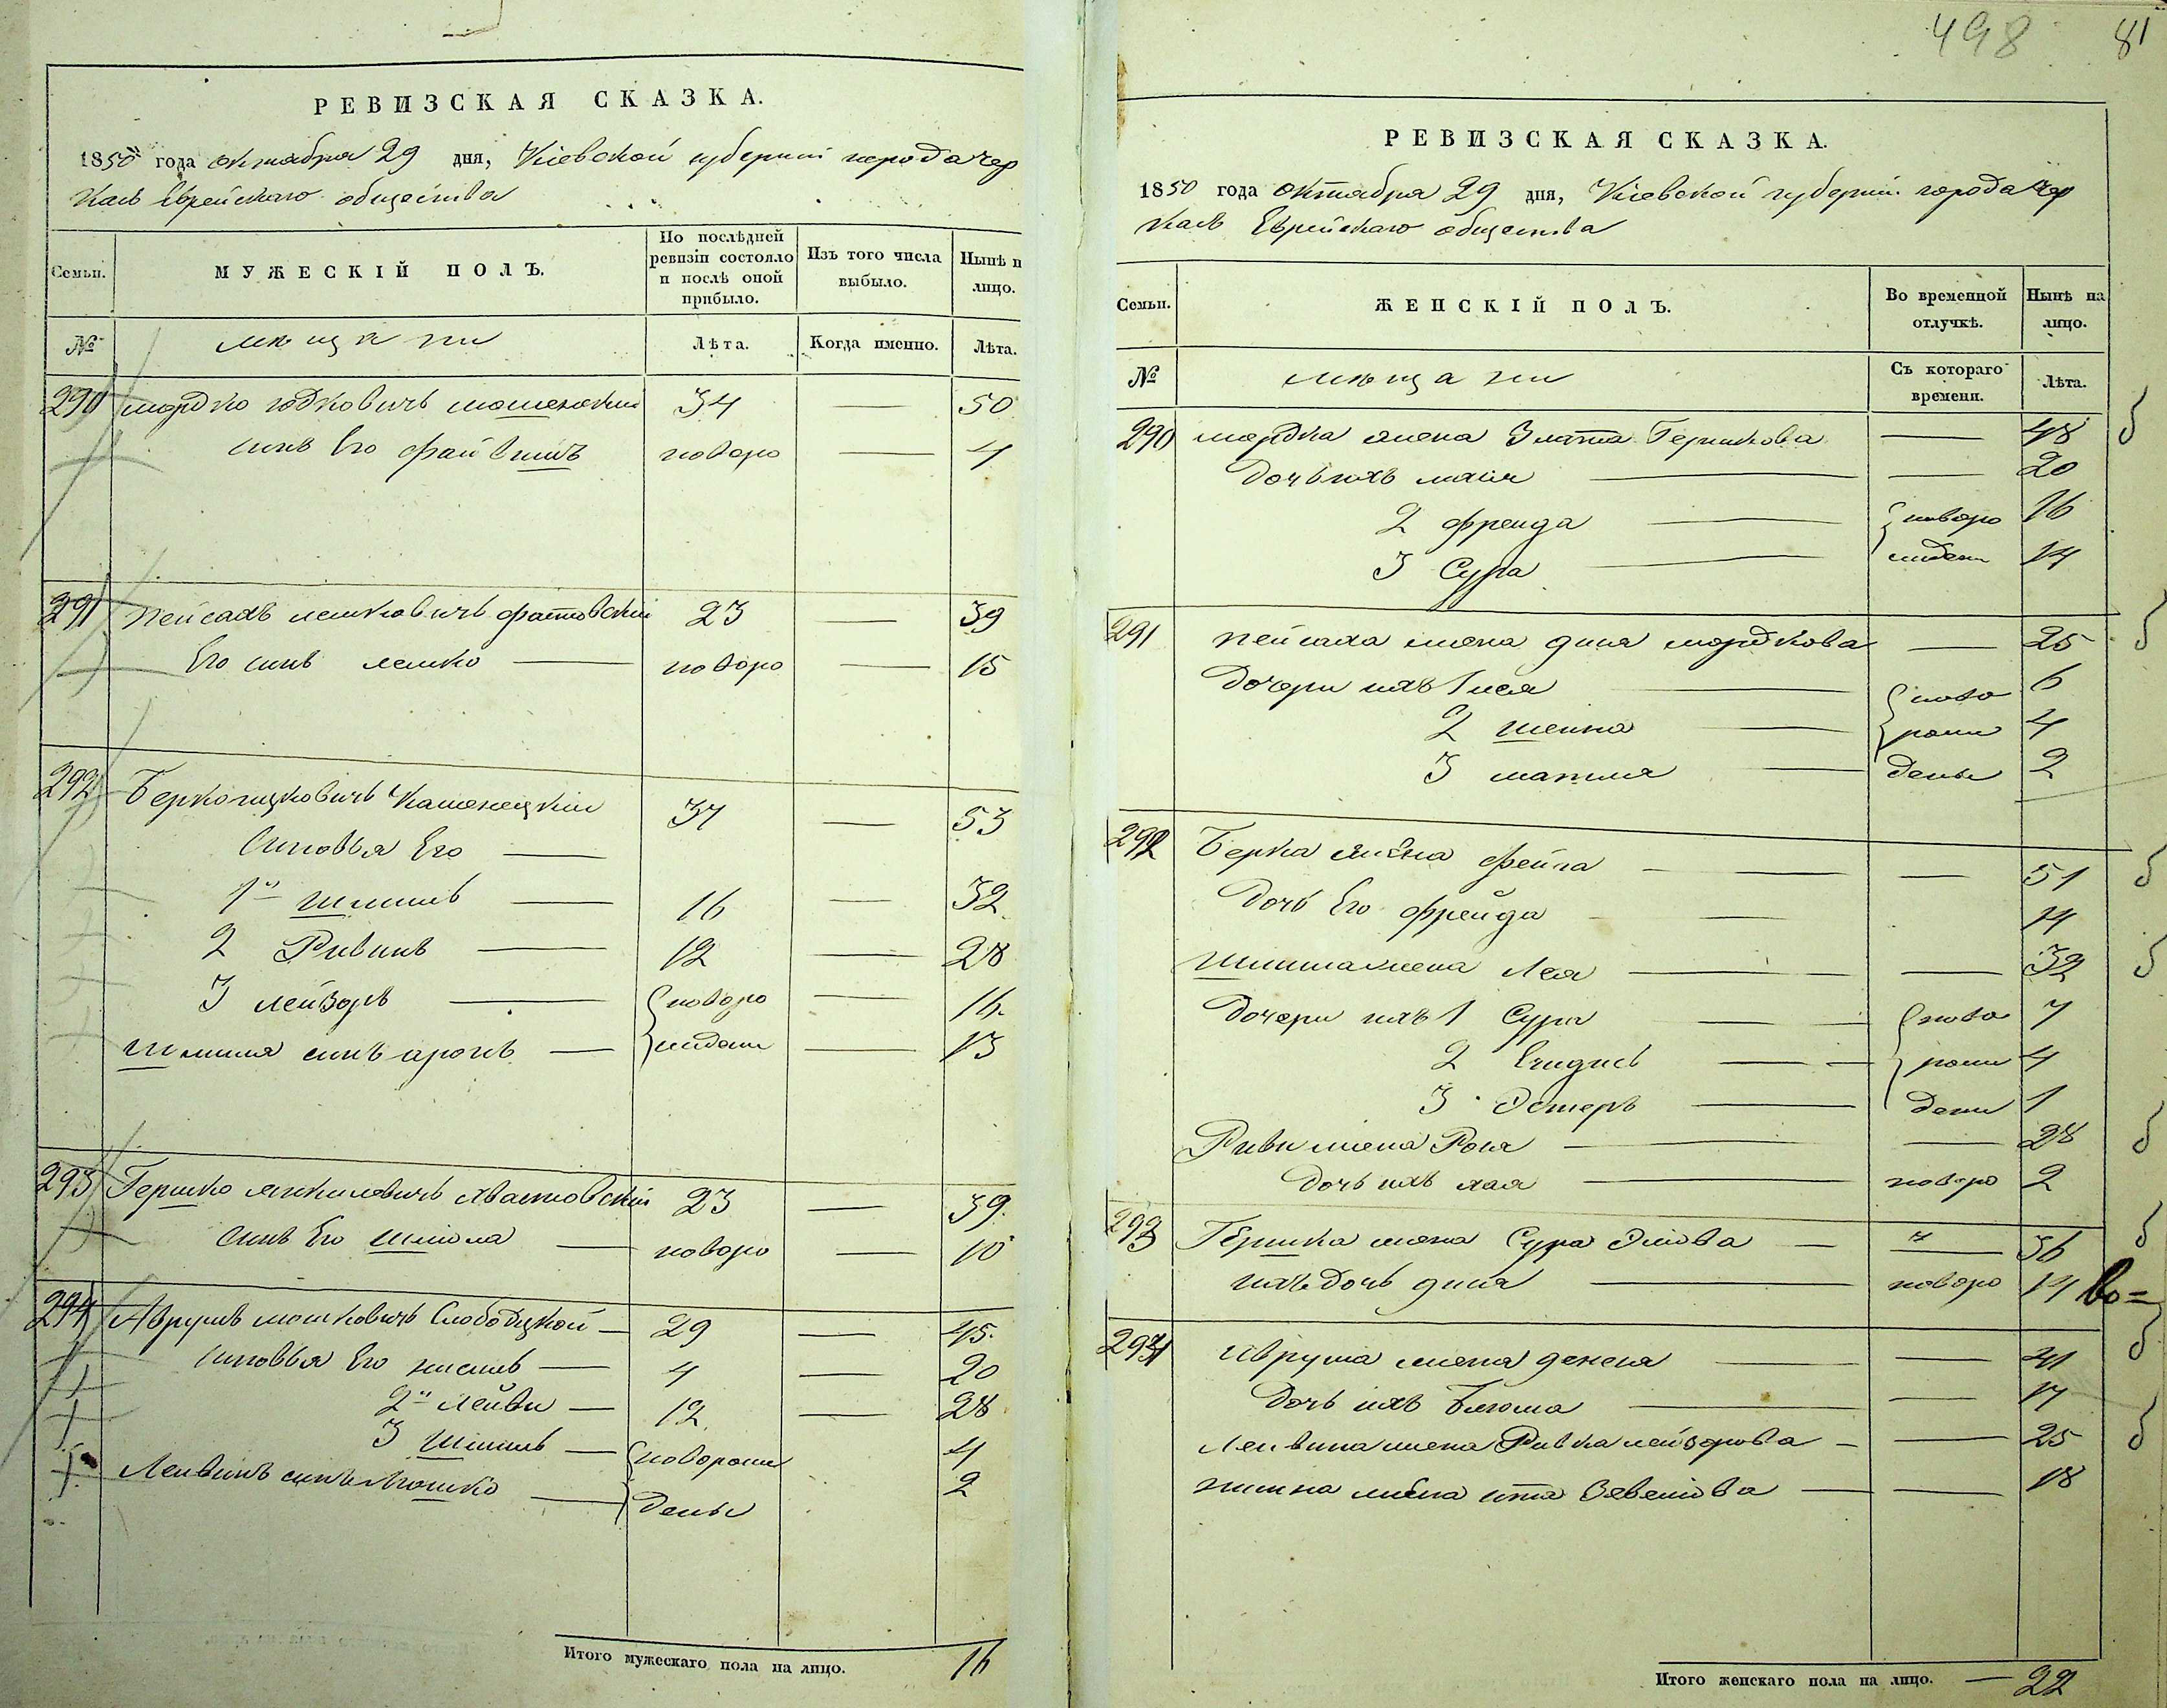 РЕВИЗСКАЯ СКАЗКА.
1850 года октября 29 дня, Кіевской губерніи города Чер
касъ Еврейскаго общества
Семьи.
МУЖЕСКІЙ ПОЛЪ.
По послѣдней ревизіи состояло и послѣ оной прибыло.
Изъ того числа выбыло.
Нынѣ н лицо.
№ мѣщани Лѣта. Когда именно. Лѣта.
290 мордко юдковичъ 34 — 50
сынъ Его файвишъ новоро — 4
291 пейсахъ лешковичъ фастовскій 23 — 39
Его сынъ лешко — новоро — 15
292 Берко ицковичъ Каменецкій 37 — 53
Сыновья Его —
1й шлиомъ — 16 — 32
2 Рувинъ — 12 — 28
3 лейзоръ — новоро — 16
шлиома сынъ аронъ — жденн — 13
293 Гершко янкилевичъ хвастовскій 23 — 39
Сынъ Его шліома — новоро — 10
294 Аврумъ мошковичъ Слободцкой — 29 — 45
сыновья Его нисинъ — 4 — 20
2й Лейви — 12 — 28
3 — новорож 4
Лейвинъ сынъ мошко — дены 2
Итого мужескаго пола на лицо. 16
498 81
РЕВИЗСКАЯ СКАЗКА.
1850 года октября 29 дня, Кіевской губерніи города Чер
касъ Еврейскаго общества
Семьи.
ЖЕНСКІЙ ПОЛЪ.
Во временной отлучкѣ.
Нынѣ на лицо.
№ мѣщани Съ котораго времени. Лѣта.
290 мордка жена Злата Гершкова — 48
дочь ихъ — — 20
2 фрейда — новоро 16
3 Сура — ждени 14
291 пейсаха жена дина мордкова — 25
Дочери ихъ 1 — ново 6
2 шейна — рож 4
3 — дены 2
292 Берка жена фейга — — 51
дочь Его фрейда — 14
жена Лея — — 32
Дочери ихъ 1 Сура — ново 7
2 — рож 4
3 Эстеръ — дени 1
Рувина жена Роня — — 28
Дочь ихъ хая — новоро 2
293 Гершка жена Сура — 36
ихъ дочь дина — новоро 14 во=
294 Аврума жена — — 41
дочь ихъ Блюма — — 17
Лейвина жена Ривка лейзорова — — 25
жена ита — — 18
Итого женскаго пола на лицо. — 22